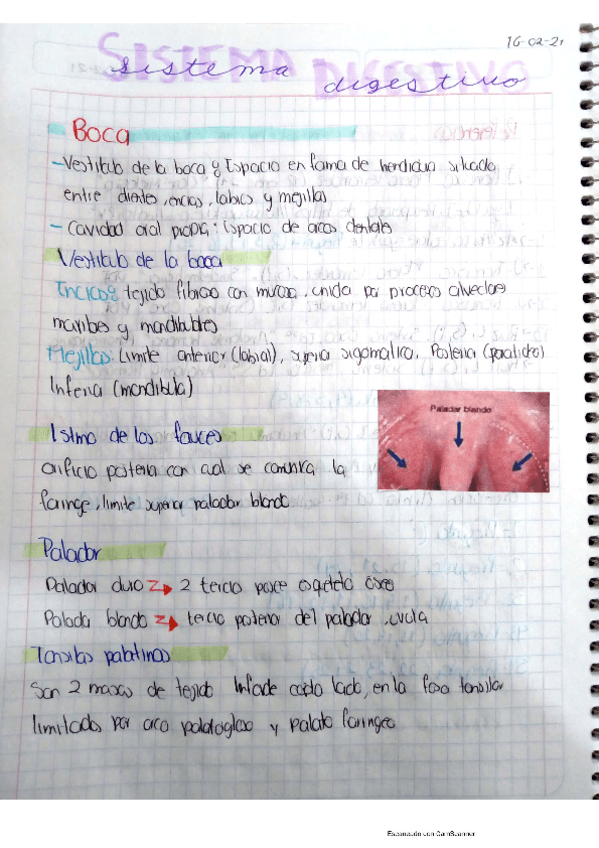 16-02-21
SISTEMA DIGESTIVO
sistema digestivo
Boca
-Vestibulo de la boca: Espacio en forma de hendidura situado
entre dientes, encias, labios y mejillas
- Cavidad oral propia: Espacio de arcos dentales
Vestibulo de la boca
Encias: tejido fibroso con mucosa, unida por procesos alveolares
maxilares y mandibulares
Mejillas: Limite anterior (labial), superior sigomatico, Posterior (parotideo)
Inferior (mandibula)
Istmo de las fauces
orificio posterior con cual se comunica la
faringe, limite superior paladar blando
Paladar blando
Paladar
Paladar duro → 2 tercio posee esqueleto oseo
Paladar blando → tercio posterior del paladar, uvula
Tonsilas palatinas
Son 2 masas de tejido linfoide cada lado, en la fosa tonsilar
limitados por arco palatogloso y palato faringeo
Escaneado con CamScanner